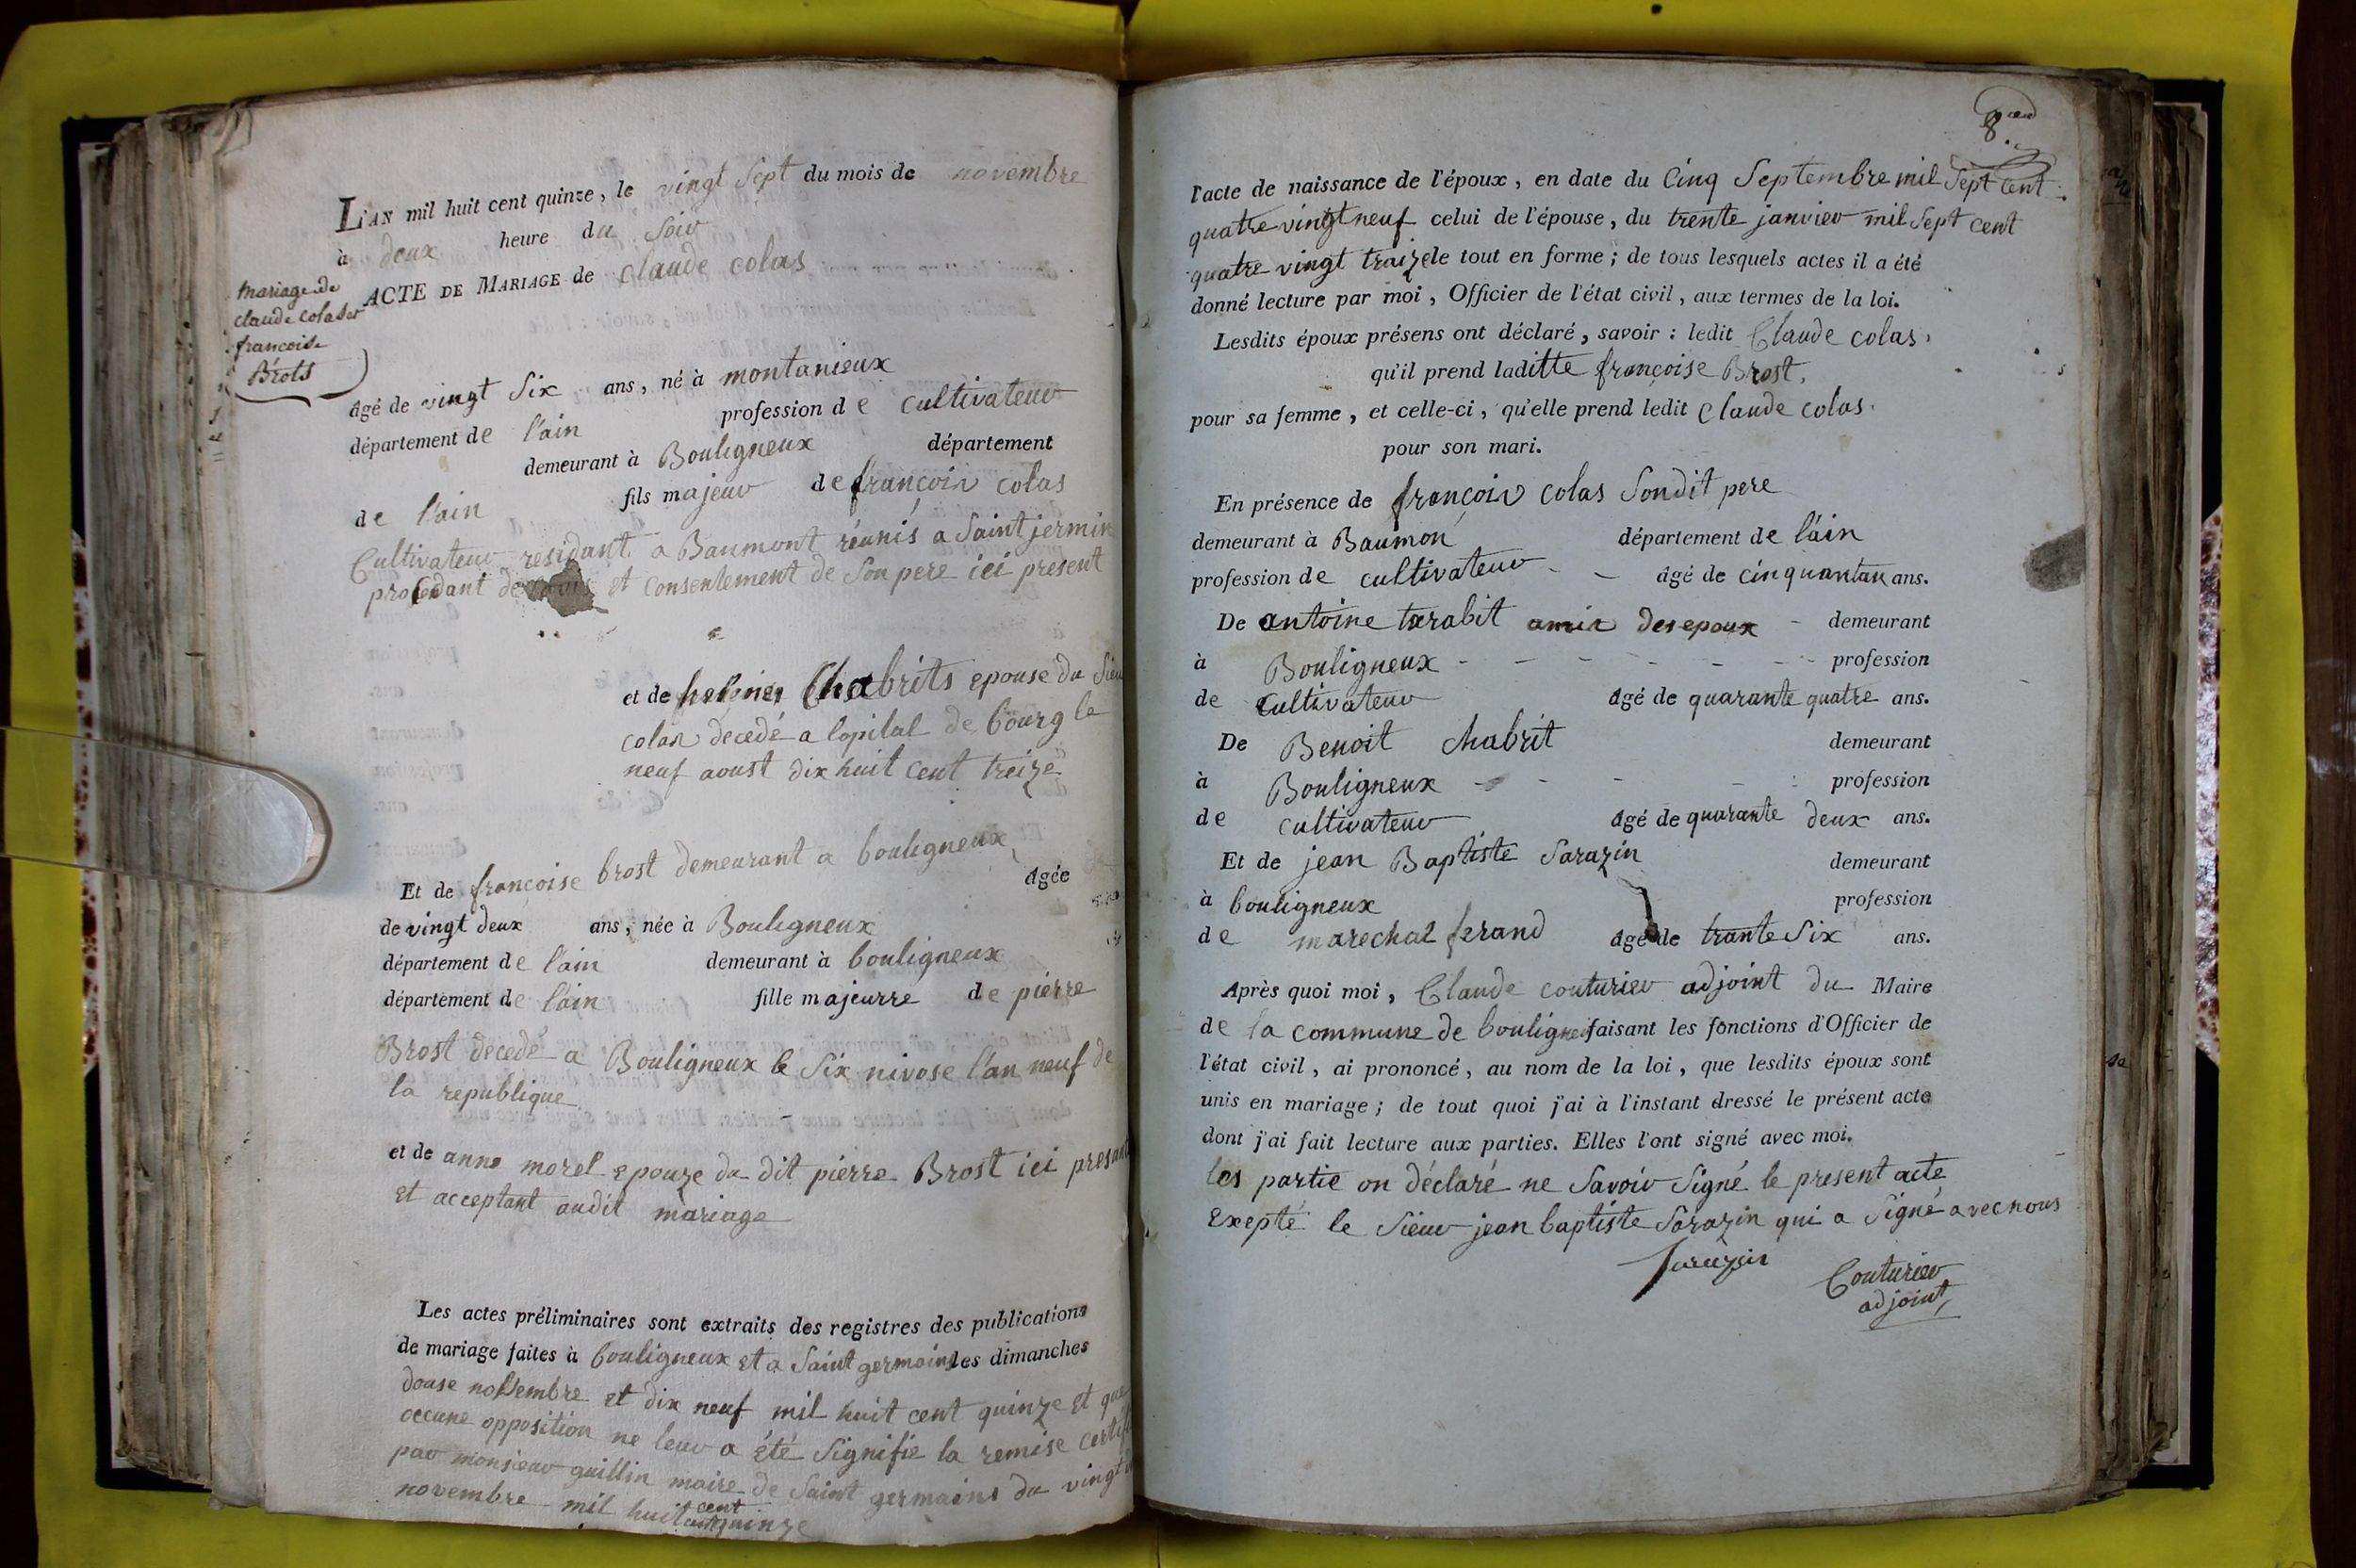 L'AN mil huit cent quinze, le vingt Sept du mois de novembre
à deux heure du Soir
ACTE DE MARIAGE de Claude colas
mariage de
claude colas et
francoise
Brots
âgé de vingt Six ans, né à montanieux
département de l'ain profession de cultivateur
demeurant à Bouligneux département
de l'ain fils majeur de françois colas
Cultivateur residant a Baumont réunis a Saint jermin
procedant de et consentement de Son pere ici present
et de Chabrits epouse du Sieu
colas decedé a lopital de bourg le
neuf aoust dix huit cent treize
Et de francoise brost demeurant a bouligneux âgée
de vingt deux ans, née à Bouligneux
département de l'ain demeurant à bouligneux
département de l'ain fille majeurre de pierre
Brost decedé a Bouligneux le Six nivose l'an neuf de
la republique
et de anne morel epouze du dit pierre Brost ici presant
et acceptant audit mariage
Les actes préliminaires sont extraits des registres des publications
de mariage faites à bouligneux et a Saint germain les dimanches
douse novembre et dix neuf mil huit cent quinze et que
occune opposition ne leur a été Signifie la remise
par monsieur guillin maire de Saint germains du vingt
novembre mil huit cent quinze
8.
l'acte de naissance de l'époux, en date du Cinq Septembre mil Sept cent
quatre vingt neuf celui de l'épouse, du trente janvier mil Sept cent
quatre vingt traize le tout en forme; de tous lesquels actes il a été
donné lecture par moi, Officier de l'état civil, aux termes de la loi.
Lesdits époux présens ont déclaré, savoir: ledit Claude colas.
qu'il prend laditte françoise Brost.
pour sa femme, et celle-ci, qu'elle prend ledit Claude colas.
pour son mari.
En présence de françois colas Sondit pere
demeurant à Baumon département de l'ain
profession de cultivateur âgé de cinquantan ans.
De antoine tarabit amis des epoux demeurant
à Bouligneux profession
de cultivateur âgé de quarante quatre ans.
De Benoit chabrit demeurant
à Bouligneux profession
de cultivateur âgé de quarante deux ans.
Et de jean Baptiste Sarazin demeurant
à bouligneux profession
de marechal ferand âgé de trante Six ans.
Après quoi moi, Claude couturier adjoint du Maire
de la commune de bouligneu faisant les fonctions d'Officier de
l'état civil, ai prononcé, au nom de la loi, que lesdits époux sont
unis en mariage; de tout quoi j'ai à l'instant dressé le présent acte
dont j'ai fait lecture aux parties. Elles l'ont signé avec moi.
les partie on déclaré ne Savoir Signé le present acte
Exepté le Sieur jean baptiste Sarazin qui a Signé avec nous
Sarazin Couturier
adjoint